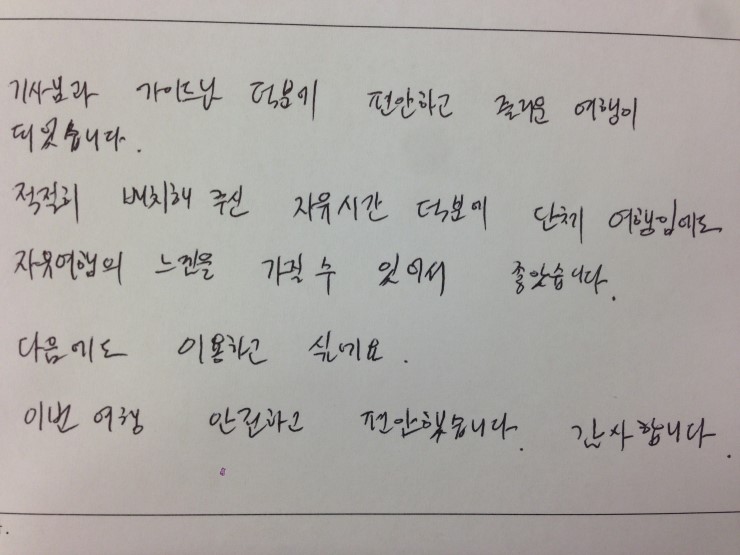 기사님과 가이드님 덕분에 편안하고 즐거운 여행이
되었습니다.
적절히 배치해 주신 자유시간 덕분에 단체 여행임에도
자유여행의 느낌을 가질 수 있어서 좋았습니다.
다음에도 이용하고 싶네요.
이번 여행 안전하고 편안했습니다. 감사합니다.